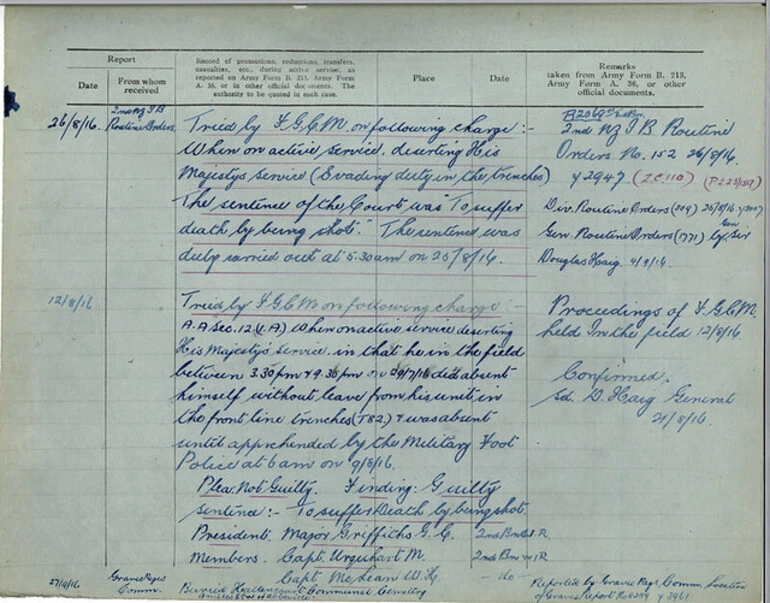 Report
Record of promotions, reductions, transfers,
casualties, etc., during active service, as
reported on Army Form B. 213, Army Form
A. 36, or in other official documents. The
authority to be quoted in each case.
Place
Date
Remarks
taken from Army Form B. 213,
Army Form A. 36, or other
official documents.
Date
From whom
received
26/8/16.
2nd NZIB
Routine Orders
Tried by F.G.C.M. on following charge:-
When on active service, deserting His
Majestys Service (Evading duty in the trenches)
The sentence of the Court was "To suffer
death by being shot." The sentence was
duly carried out at 5.30am on 25/8/16.
2nd NZIB Routine
Orders No. 152 26/8/16.
y2947 (ZC110)
Div. Routine Orders (304) 25/8/16
Gen. Routine Orders (1771) by Gen Sir
Douglas Haig 4/9/16.
12/8/16
Tried by F.G.C.M on following charge:-
A.A Sec. 12 (1.A) When on active service deserting
His Majesty's Service in that he in the field
between 3.30pm & 9.30pm on 29/7/16 did absent
himself without leave from his unit in
the front line trenches (T82) & was absent
until apprehended by the Military Foot
Police at 6am on 9/8/16.
Plea: Not Guilty. Finding: Guilty
Sentence:- To suffer Death by being shot.
Proceedings of F.G.C.M.
held In the field 12/8/16
Confirmed.
sd. D. Haig General
21/8/16.
President. Major Griffiths G.C. 2nd Bn
Members. Capt. Urquhart M. 2nd Bn
Capt. McLean W.H. - do -
27/9/16
Graves Regs
Comm.
Buried Hallencourt Communal Cemetery
Reported by Graves Regs. Comm. Location
of Graves Report y3961